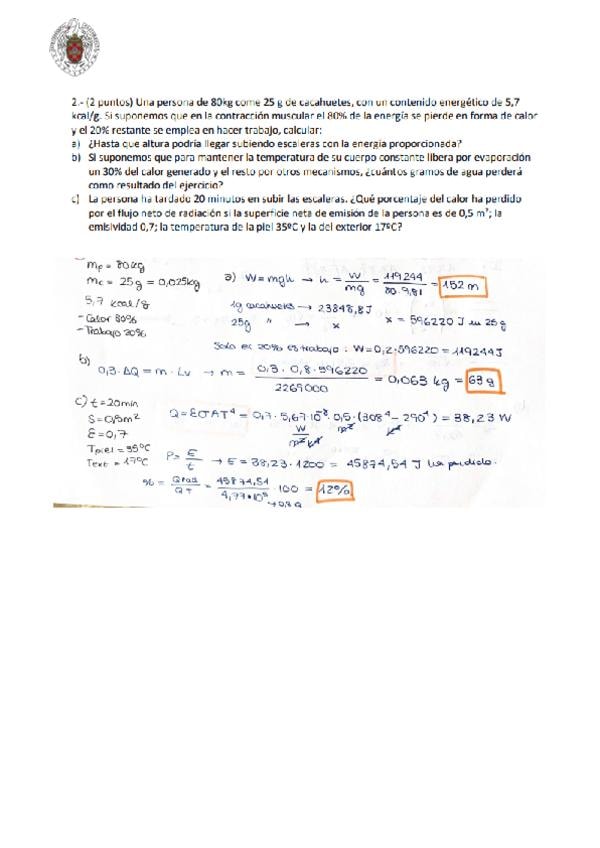 2.- (2 puntos) Una persona de 80kg come 25 g de cacahuetes, con un contenido energético de 5,7
kcal/g. Si suponemos que en la contracción muscular el 80% de la energía se pierde en forma de calor
y el 20% restante se emplea en hacer trabajo, calcular:
a) ¿Hasta que altura podría llegar subiendo escaleras con la energía proporcionada?
b) Si suponemos que para mantener la temperatura de su cuerpo constante libera por evaporación
un 30% del calor generado y el resto por otros mecanismos, ¿cuántos gramos de agua perderá
como resultado del ejercicio?
c) La persona ha tardado 20 minutos en subir las escaleras. ¿Qué porcentaje del calor ha perdido
por el flujo neto de radiación si la superficie neta de emisión de la persona es de 0,5 m²; la
emisividad 0,7; la temperatura de la piel 35ºC y la del exterior 17ºC?
mp = 80kg
mc = 25g = 0,025kg
5,7 kcal/g
- Calor 80%
- Trabajo 20%
a) W=mgh → h = W/mg = 119244/80·9,81 = 152 m
1g cacahuets → 23848,8J
25g " → x x = 596220 J en 25g
Solo el 20% es trabajo : W=0,2·596220 = 119244J
b)
0,3·ΔQ = m·Lv → m = 0,3·0,8·596220/2269000 = 0,063 kg = 63 g
c) t = 20min
S = 0,5m²
ε = 0,7
Tpiel = 35ºC
Text = 17ºC
Q = εσAT⁴ = 0,7·5,67·10⁻⁸·0,5·(308⁴ − 290⁴) = 38,23 W
W/m²k⁴ m² k⁴
P = E/t → E = 38,23·1200 = 45874,54 J ha perdido.
% = Qrad/QT = 45874,54/4,77·10⁵ ·100 = 12%
→ 0,8 Q